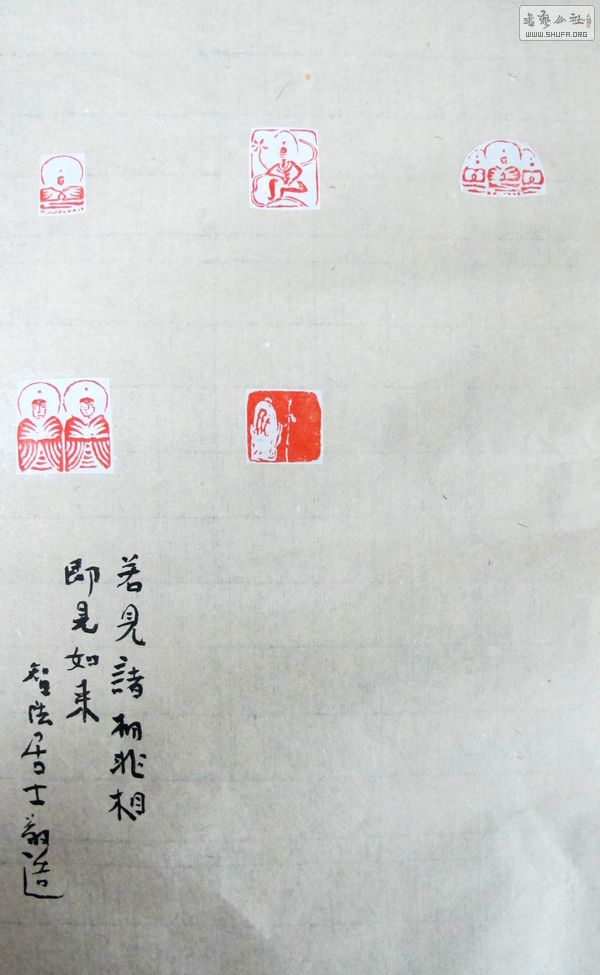 書藝公社
WWW.SHUFA.ORG
若見諸相非相
即見如来
智浩居士敬造